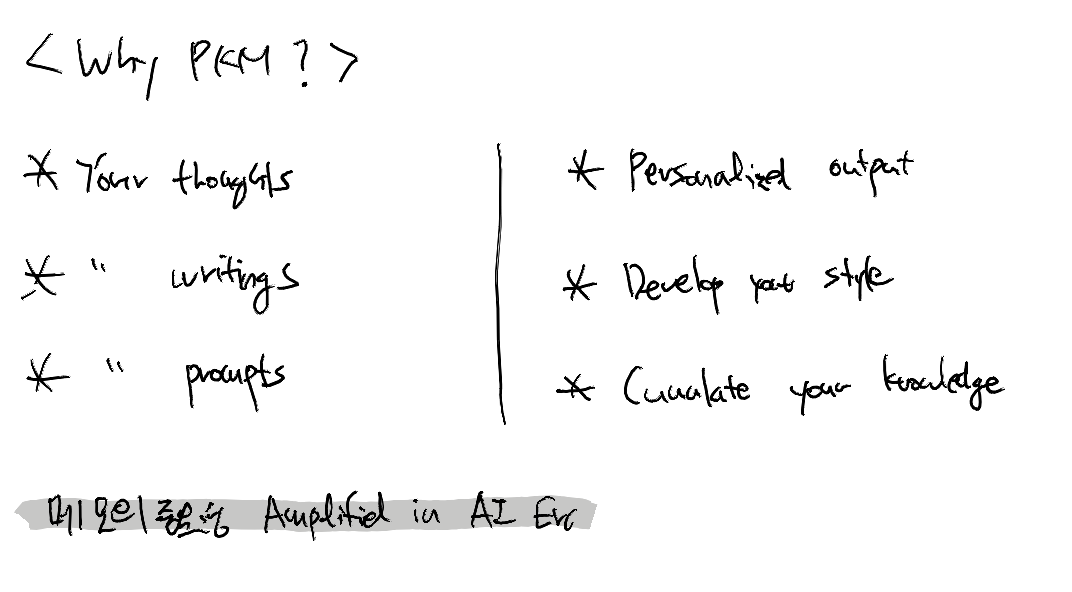 < Why PKM ? >
* Your thoughts
* " writings
* " prompts
* Personalized output
* Develop your style
* Cumulate your knowledge
메모의 중요성 Amplified in AI Era